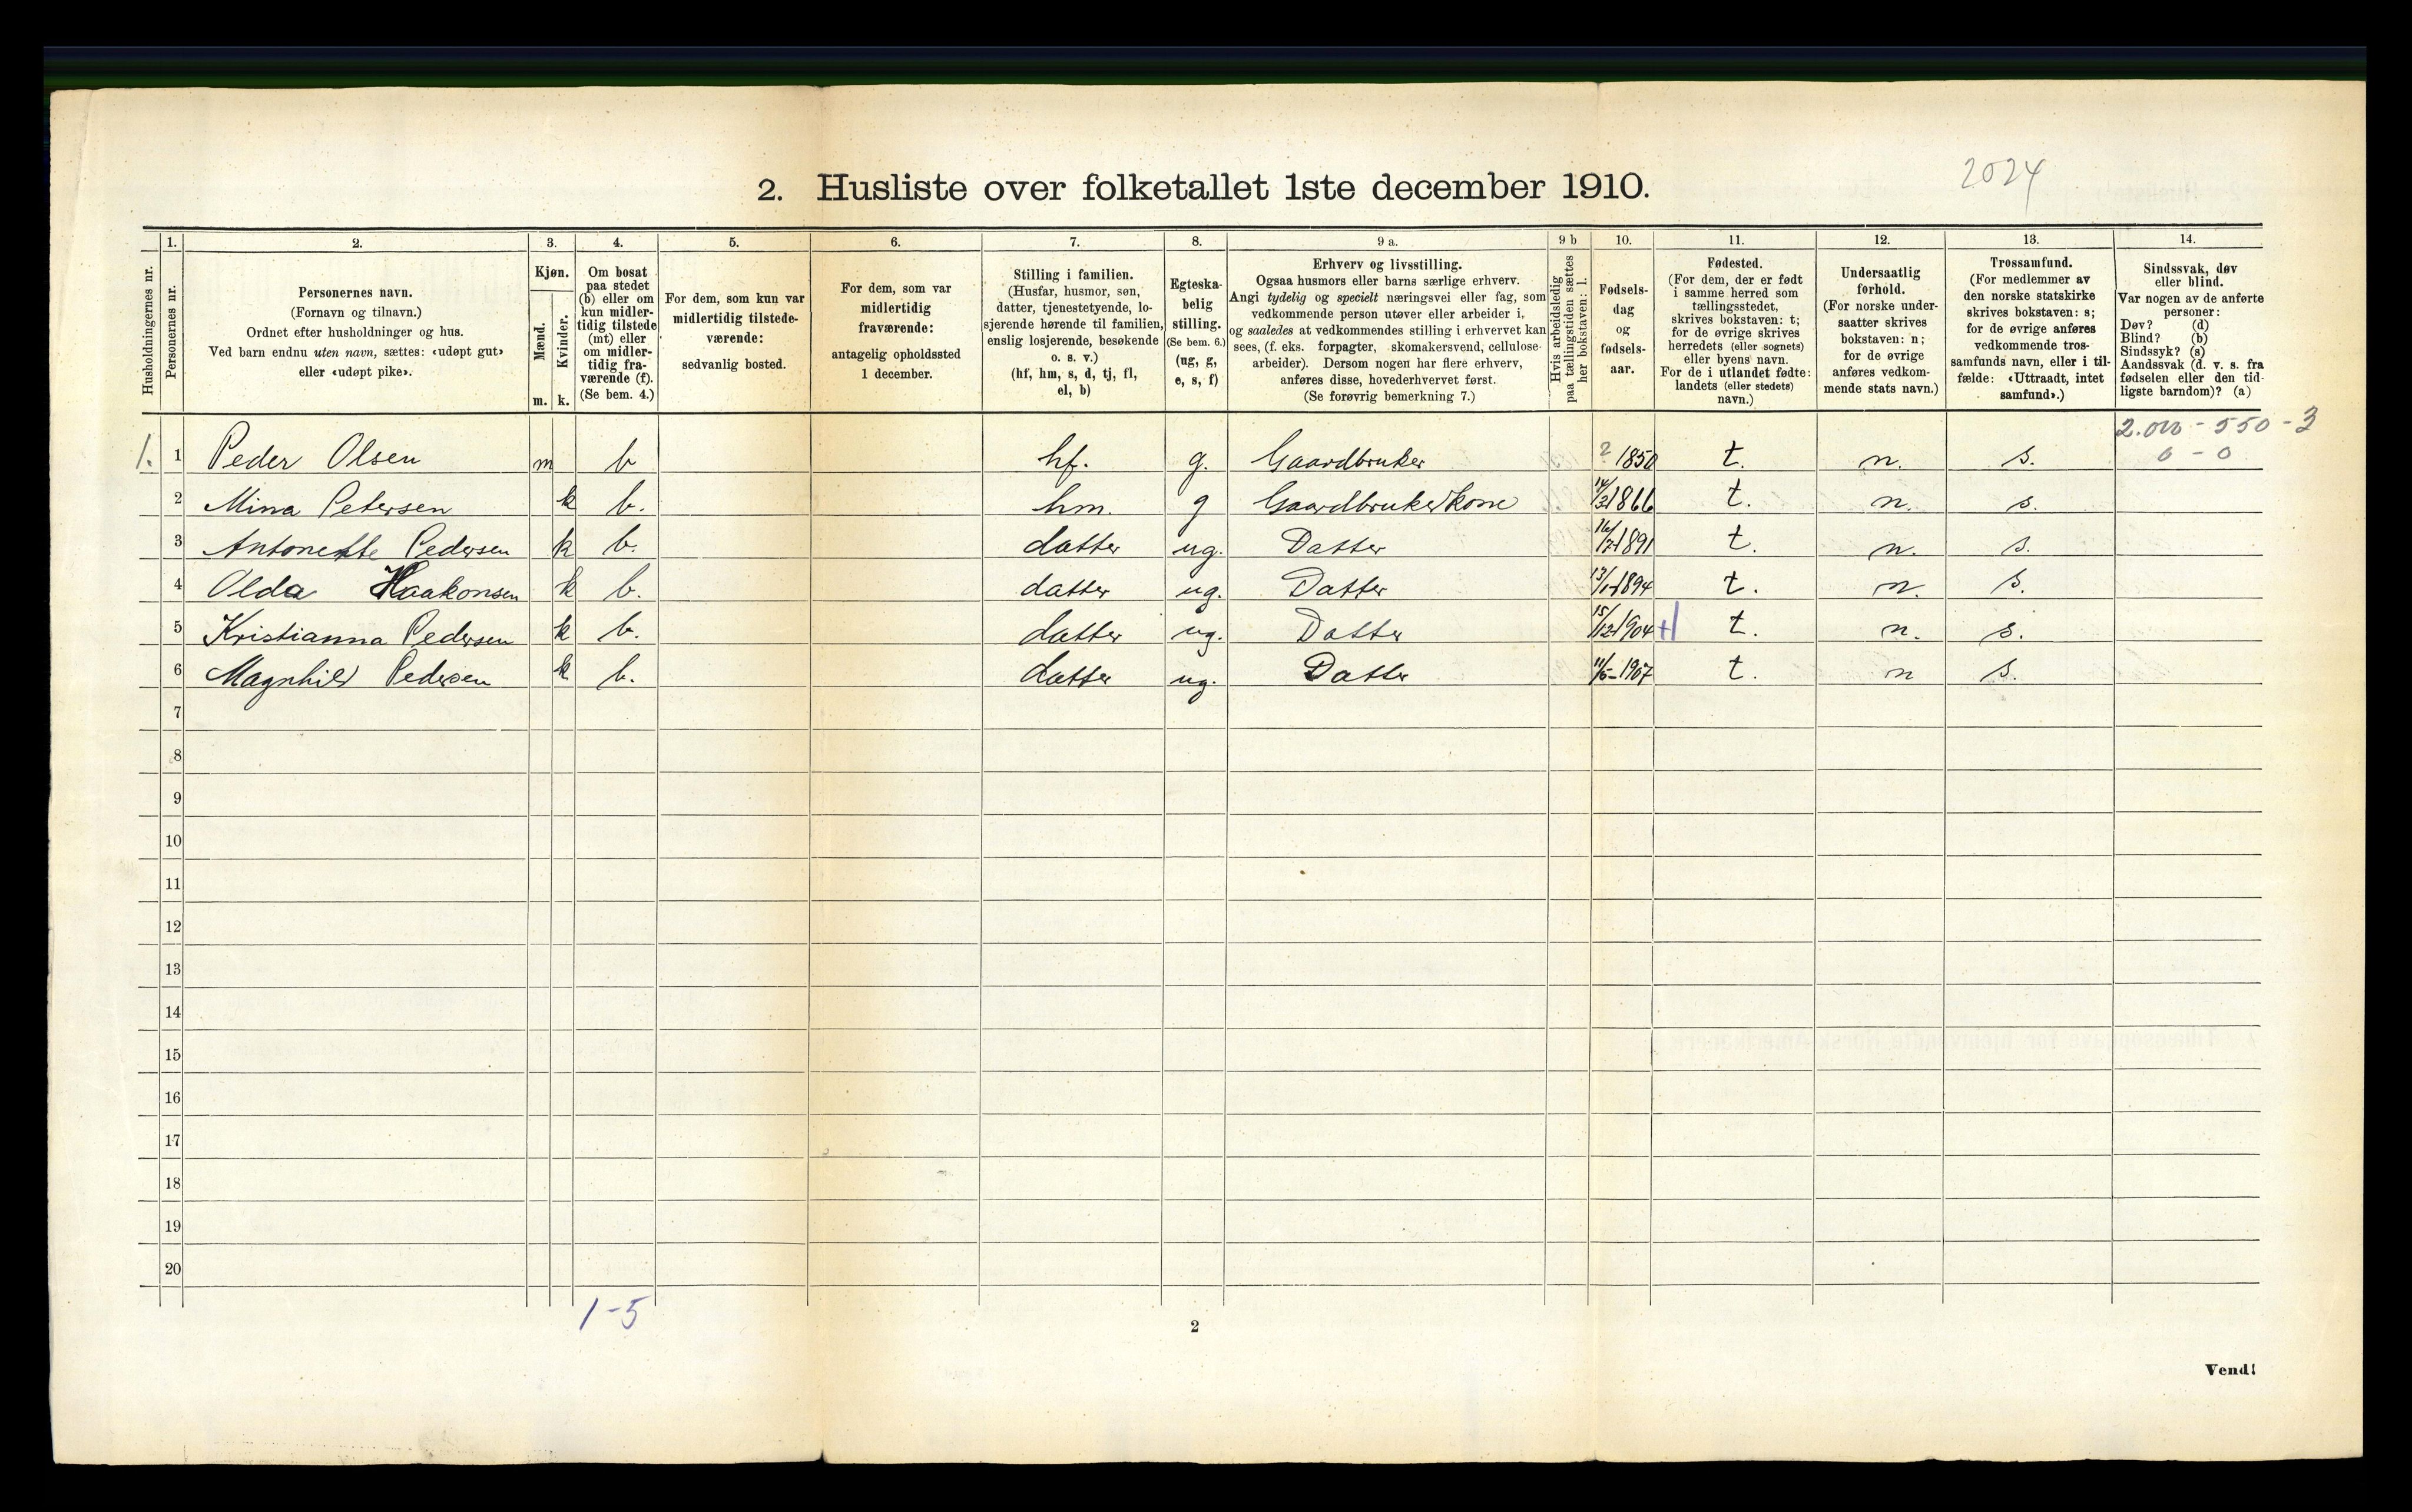 2024
2. Husliste over folketallet 1ste december 1910.
1. 2. 3. 4. 5. 6. 7. 8. 9 a. 9 b 10. 11. 12. 13. 14.
Husholdningernes nr.
Personernes nr.
Personernes navn.
(Fornavn og tilnavn.)
Ordnet efter husholdninger og hus.
Ved barn endnu uten navn, sættes: «udøpt gut»
eller «udøpt pike».
Kjøn.
Mænd.
Kvinder.
m. k.
Om bosat
paa stedet
(b) eller om
kun midler-
tidig tilstede
(mt) eller
om midler-
tidig fra-
værende (f).
(Se bem. 4.)
For dem, som kun var
midlertidig tilstede-
værende:
sedvanlig bosted.
For dem, som var
midlertidig
fraværende:
antagelig opholdssted
1 december.
Stilling i familien.
(Husfar, husmor, søn,
datter, tjenestetyende, lo-
sjerende hørende til familien,
enslig losjerende, besøkende
o. s. v.)
(hf, hm, s, d, tj, fl,
el, b)
Egteska-
belig
stilling.
(Se bem. 6.)
(ug, g,
e, s, f)
Erhverv og livsstilling.
Ogsaa husmors eller barns særlige erhverv.
Angi tydelig og specielt næringsvei eller fag, som
vedkommende person utøver eller arbeider i,
og saaledes at vedkommendes stilling i erhvervet kan
sees, (f. eks. forpagter, skomakersvend, cellulose-
arbeider). Dersom nogen har flere erhverv,
anføres disse, hovederhvervet først.
(Se forøvrig bemerkning 7.)
Hvis arbeidsledig
paa tællingstiden sættes
her bokstaven: l.
Fødsels-
dag
og
fødsels-
aar.
Fødested.
(For dem, der er født
i samme herred som
tællingsstedet,
skrives bokstaven: t;
for de øvrige skrives
herredets (eller sognets)
eller byens navn.
For de i utlandet fødte:
landets (eller stedets)
navn.)
Undersaatlig
forhold.
(For norske under-
saatter skrives
bokstaven: n;
for de øvrige
anføres vedkom-
mende stats navn.)
Trossamfund.
(For medlemmer av
den norske statskirke
skrives bokstaven: s;
for de øvrige anføres
vedkommende tros-
samfunds navn, eller i til-
fælde: «Uttraadt, intet
samfund».)
Sindssvak, døv
eller blind.
Var nogen av de anførte
personer:
Døv? (d)
Blind? (b)
Sindssyk? (s)
Aandssvak (d. v. s. fra
fødselen eller den tid-
ligste barndom)? (a)
2.000 - 550 - 3
1. 1 Peder Olsen m b hf. g. Gaardbruker ? 1850 t. n. s. 0 - 0
2 Mina Petersen k b. hm. g Gaardbrukerkone 14/3 1866 t. n. s.
3 Antonette Pedersen k b. datter ug. Datter 1891 t. n. s.
4 Olda Haakonsen k b. datter ug. Datter 1894 t. n. s.
5 Kristianna Pedersen k b. datter ug. Datter 15/12 1904 t. n. s.
6 Magnhild Pedersen k b. datter ug. Datter 11/5-1907 t. n s.
7
8
9
10
11
12
13
14
15
16
17
18
19
20
1-5
2
Vend!